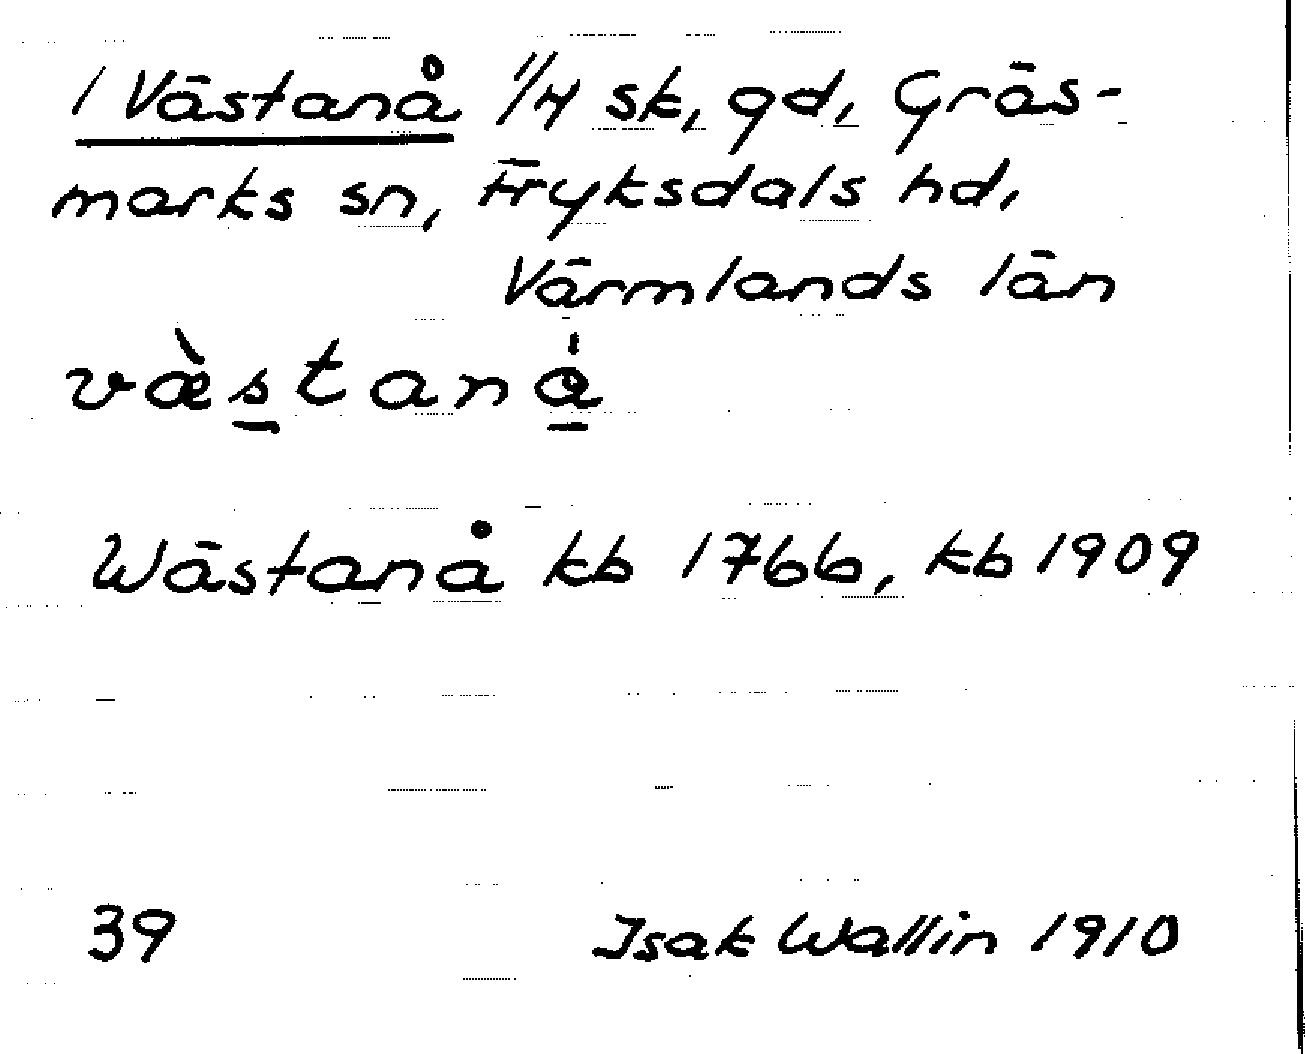 1 Västanå 1/4 sk, gd, Gräs-
marks sn, Fryksdals hd,
Värmlands län
væ̀stanå̀
Wästanå kb 1766, kb 1909
39 Isak Wallin 1910